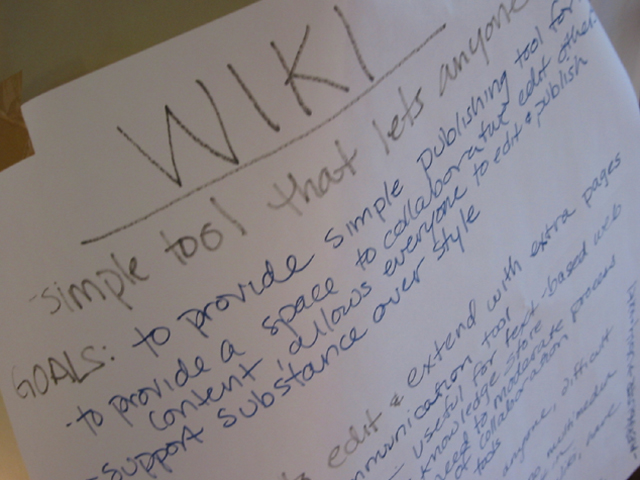 WIKI
-simple tool that lets anyone
GOALS: to provide simple publishing tool for
-to provide a space to collaborative edit other
content, allows everyone to edit & publish
-support substance over style
edit & extend with extra pages
communication tool
- useful for text-based web
knowledge store
need to moderate process
of collaboration
tools
anyone, difficult
multimedia